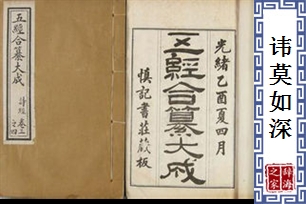 五經合纂大成
詩經 卷三之四
光緒乙酉夏四月
五經合纂大成
慎記書莊藏板
讳莫如深
辞海之家